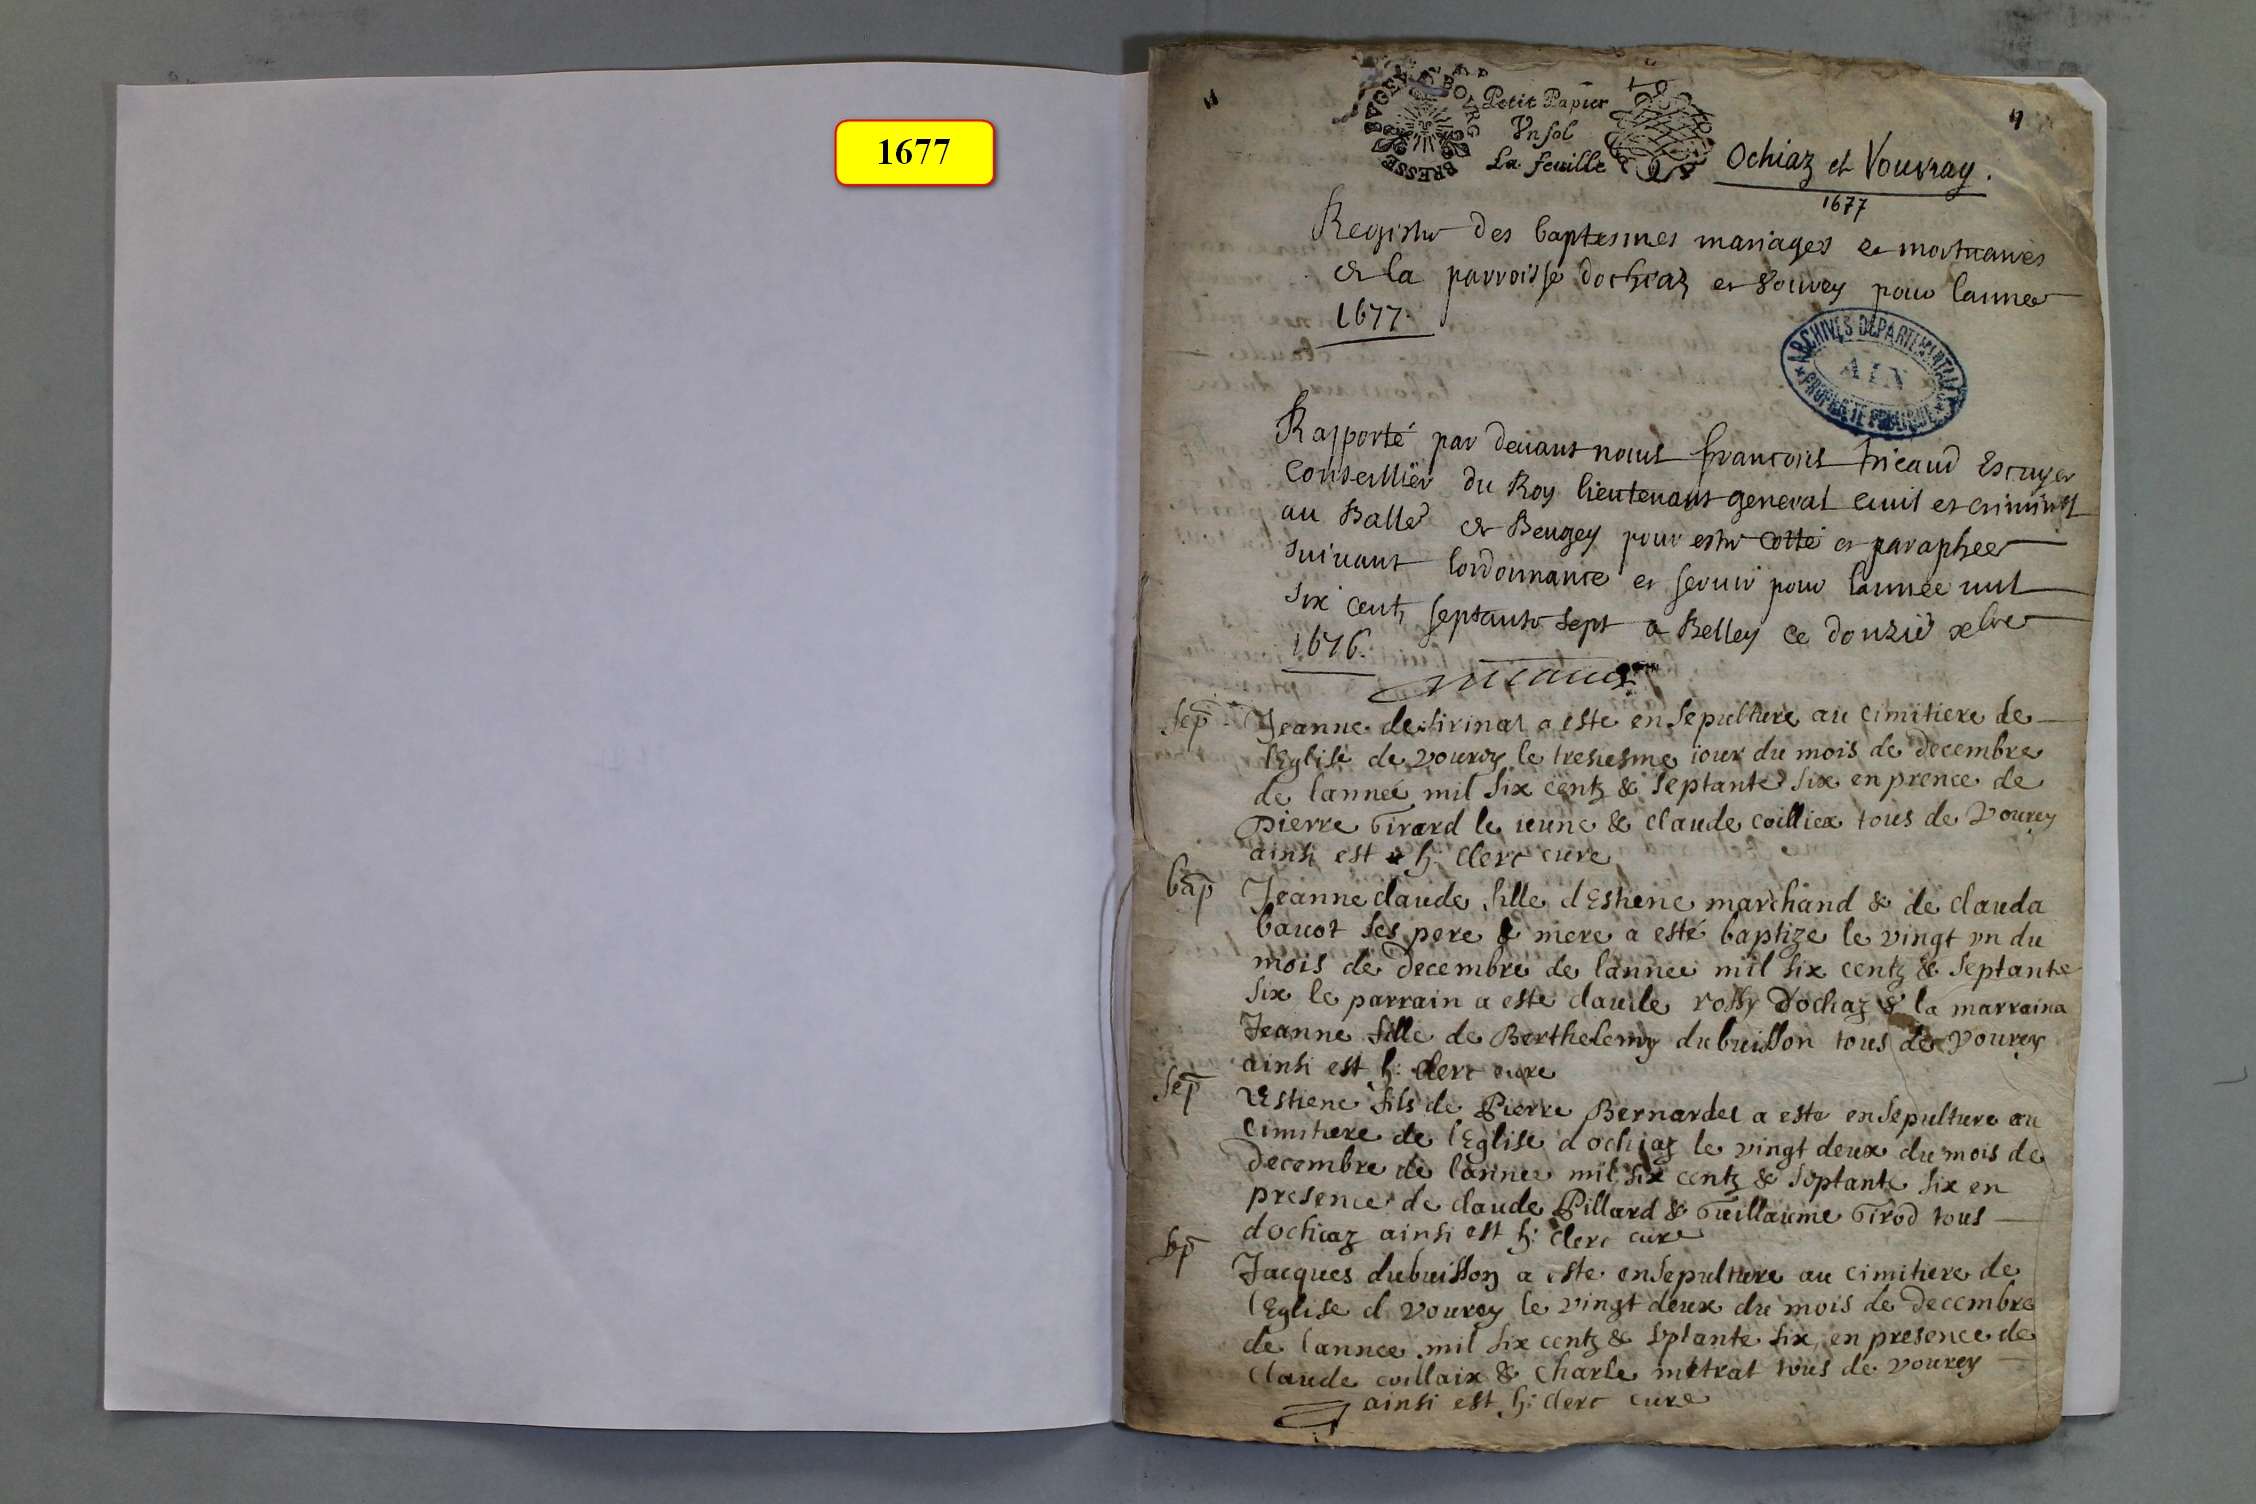 1677
BVGEY BOVRG BRESSE
Petit Papier
Vn sol
La feuille
Ochiaz et Vouvray.
1677
Registre des baptesmes mariages et mortuaires
de la parroisse dochiaz et vouvrey pour lannee
1677.
ARCHIVES DÉPARTEMENTALES
AIN
PROPRIÉTÉ PUBLIQUE
Rapporté par deuant nous francois tricaud Escuyer
Conseillier du Roy lieutenant general ciuil et criminel
au Balle de Beugey pour estre cotté et paraphee
suiuant lordonnance et seruir pour lannee mil
six centz septante sept a Belley ce douzie xbre
1676.
tricaud
sep Jeanne de a este ensepulture au cimitiere de
lEglise de vourey le tresiesme iour du mois de decembre
de lanneé mil six centz & septante six en prence de
pierre Girard le ieune & claude coilliex tous de vourey
ainsi est h: clerc cure
bap Jeanne claude fille dEstiene marchand & de clauda
bauot ses pere & mere a esté baptize le vingt vn du
mois de decembre de lannee mil six centz & septante
six le parrain a este claude rossy dochiaz & la marraina
Jeanne fille de Berthelemy dubuisson tous de vourey
ainsi est h: clerc cure
sep Estiene fils de Pierre Bernardet a este ensepulture au
cimitiere de lEglise dochiaz le vingt deux du mois de
decembre de lannee mil six centz & septante six en
presence de claude Pillard & Guillaume Girod tous
dochiaz ainsi est h: clerc cure
sep Jacques dubuisson a este ensepulture au cimitiere de
lEglise d vourey le vingt deux du mois de decembre
de lannee mil six centz & septante six en presence de
claude coillaix & charle metrat tous de vourey
ainsi est h: clerc cure